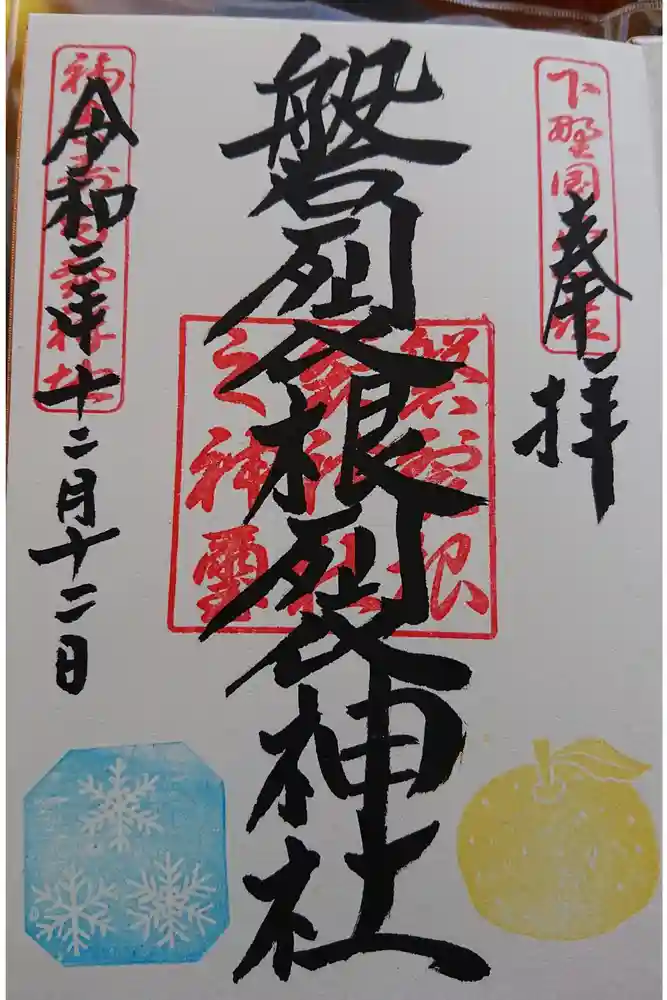 下野国
奉拝
磐裂根裂神社
磐裂根
裂神社
之神璽
令和二年十二月十二日